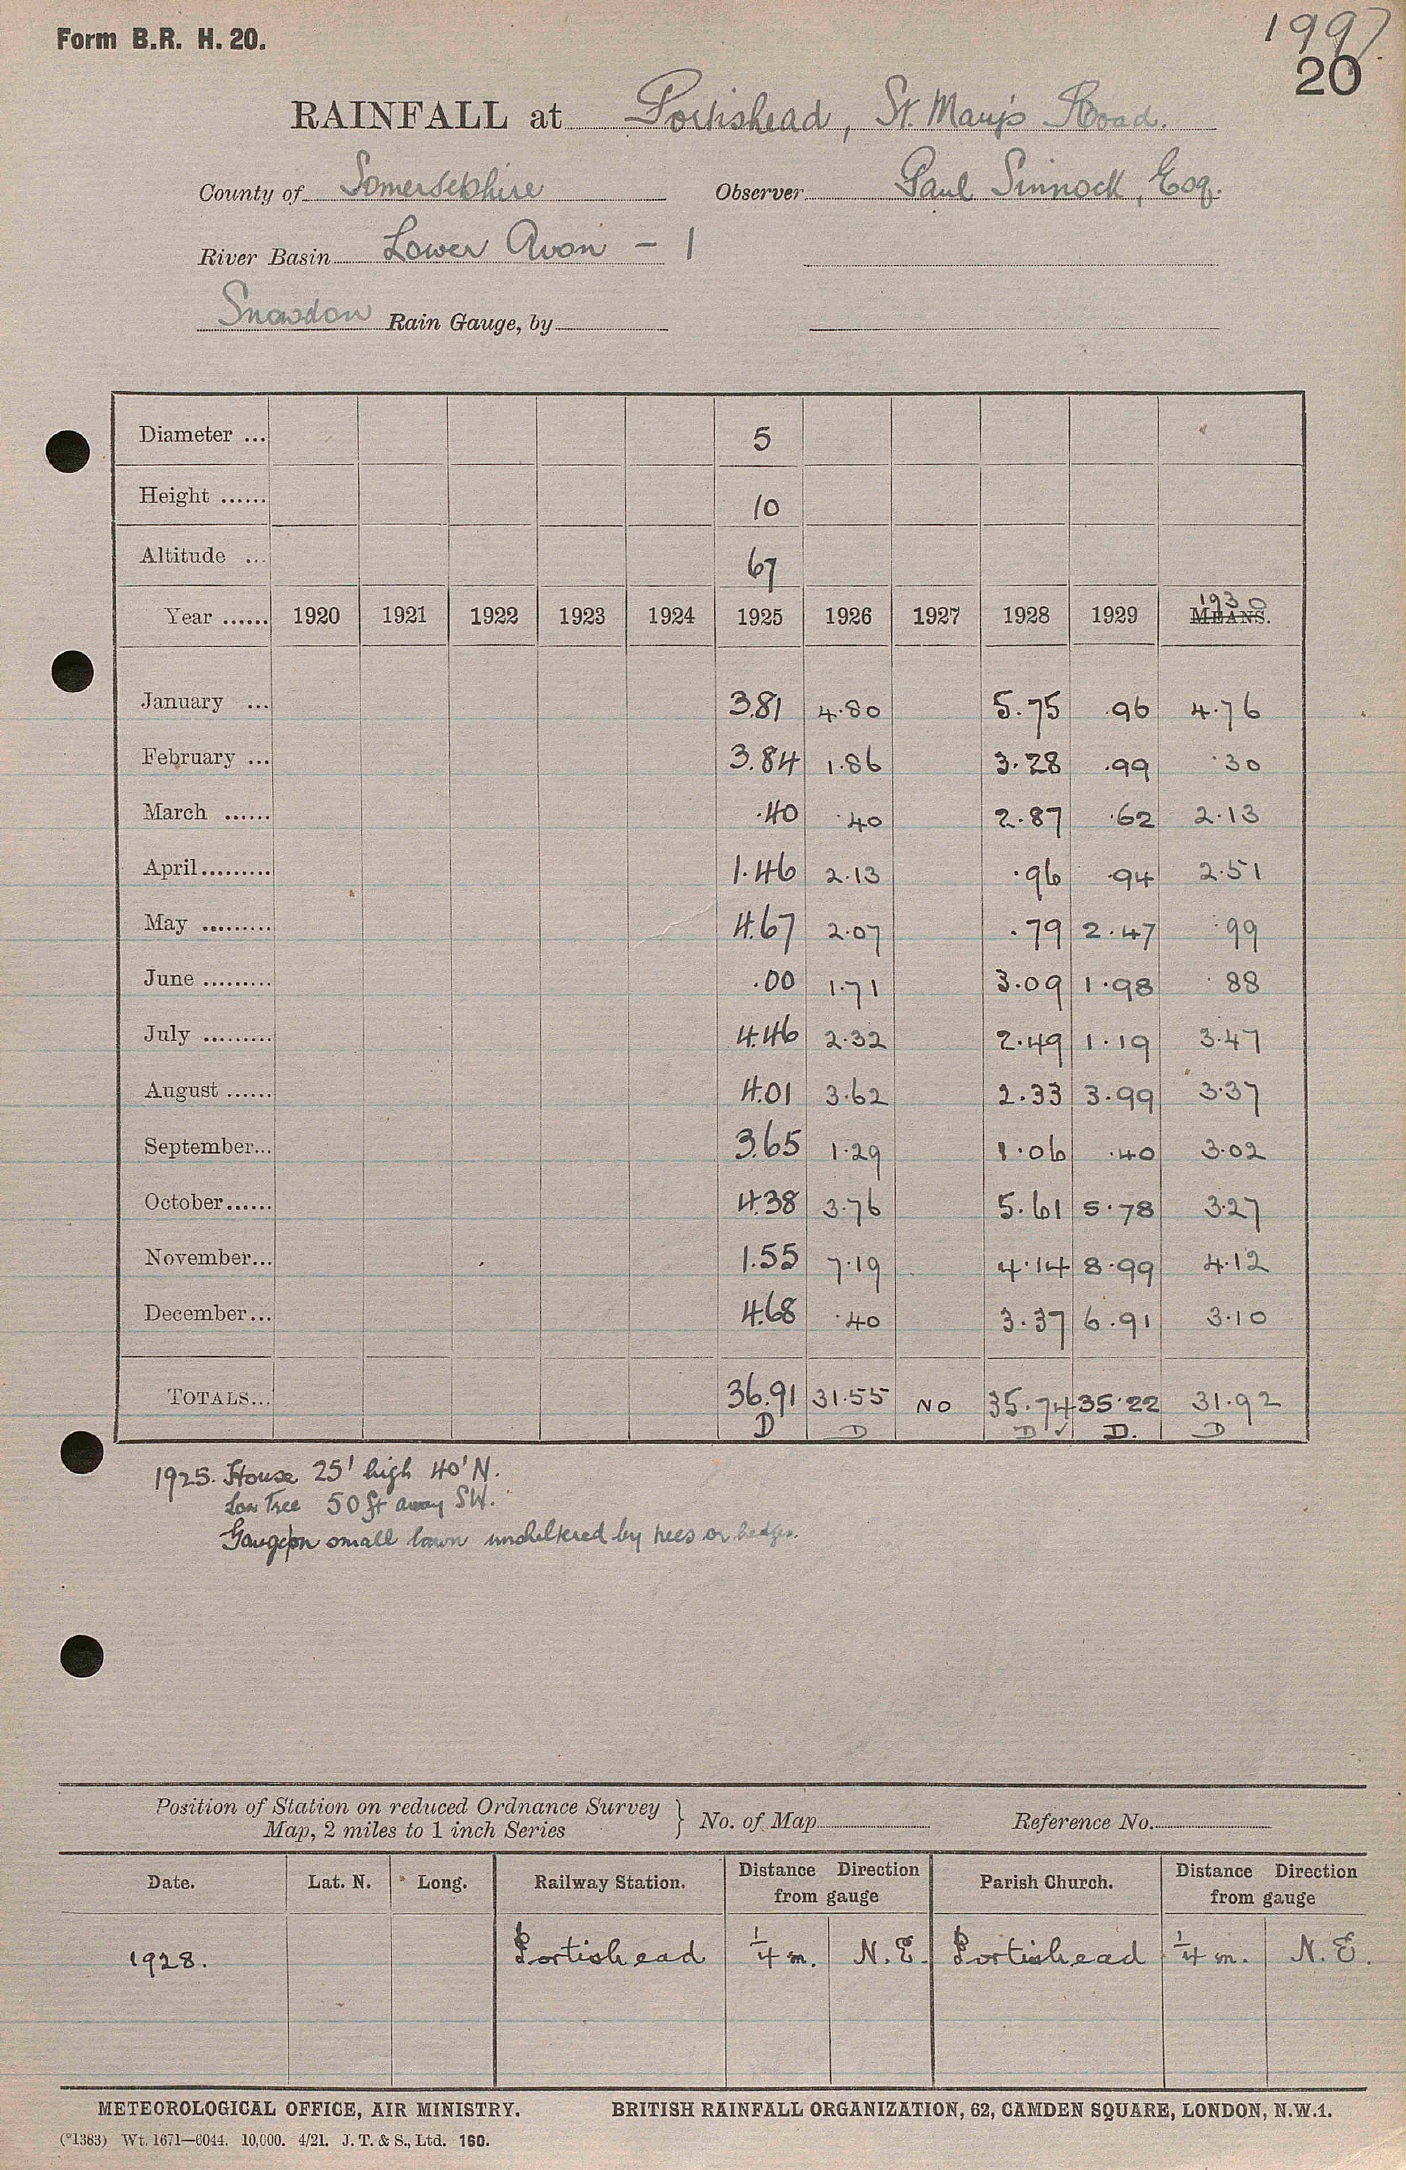 Form B.R. H. 20.
1997
20
RAINFALL at Portishead, St. Mary's Road.
County of Somersetshire Observer Paul Sinnock, Esq.
River Basin Lower Avon - 1
Snowdon Rain Gauge, by
Diameter ... 5
Height ...... 10
Altitude ... 67
1930
Year ...... 1920 1921 1922 1923 1924 1925 1926 1927 1928 1929 MEANS.
January ... 3.81 4.80 5.75 .96 4.76
February ... 3.84 1.86 3.28 .99 .30
March ...... .40 .40 2.87 .62 2.13
April......... 1.46 2.13 .96 .94 2.51
May ......... 4.67 2.07 .79 2.47 .99
June ......... .00 1.71 3.09 1.98 .88
July ......... 4.46 2.32 2.49 1.19 3.47
August ...... 4.01 3.62 2.33 3.99 3.37
September... 3.65 1.29 1.06 .40 3.02
October...... 4.38 3.76 5.61 5.78 3.27
November... 1.55 7.19 4.14 8.99 4.12
December... 4.68 .40 3.37 6.91 3.10
TOTALS... 36.91 31.55 NO 35.74 35.22 31.92
D D D ✓ D. D
1925. House 25' high 40' N.
Low Tree 50 ft away SW.
Gauge on small lawn unsheltered by trees or hedges.
Position of Station on reduced Ordnance Survey
Map, 2 miles to 1 inch Series } No. of Map Reference No.
Date. Lat. N. Long. Railway Station. Distance Direction from gauge Parish Church. Distance Direction from gauge
1928. Portishead 1/4 m. N.E. Portishead 1/4 m. N.E.
METEOROLOGICAL OFFICE, AIR MINISTRY. BRITISH RAINFALL ORGANIZATION, 62, CAMDEN SQUARE, LONDON, N.W.1.
(*1383) Wt. 1671—6044. 10,000. 4/21. J. T. & S., Ltd. 160.